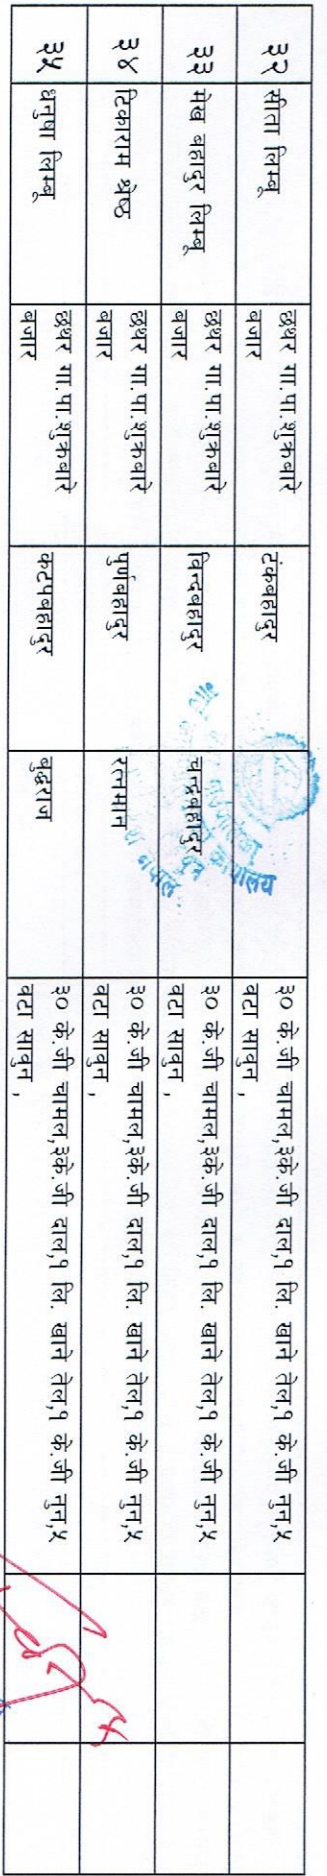 ३२ सीता लिम्बू छथर गा.पा.शुक्रबारे बजार टंकबहादुर ३० के.जी चामल,३के.जी दाल,१ लि. खाने तेल,१ के.जी नुन,५ वटा साबुन,
३३ मेख बहादुर लिम्बू छथर गा.पा.शुक्रबारे बजार विन्दबहादुर चन्द्रबहादुर ३० के.जी चामल,३के.जी दाल,१ लि. खाने तेल,१ के.जी नुन,५ वटा साबुन,
३४ टिकाराम श्रेष्ठ छथर गा.पा.शुक्रबारे बजार पुर्णबहादुर रत्नमान ३० के.जी चामल,३के.जी दाल,१ लि. खाने तेल,१ के.जी नुन,५ वटा साबुन,
३५ धनुषा लिम्बू छथर गा.पा.शुक्रबारे बजार कटपबहादुर बुद्धराज ३० के.जी चामल,३के.जी दाल,१ लि. खाने तेल,१ के.जी नुन,५ वटा साबुन,